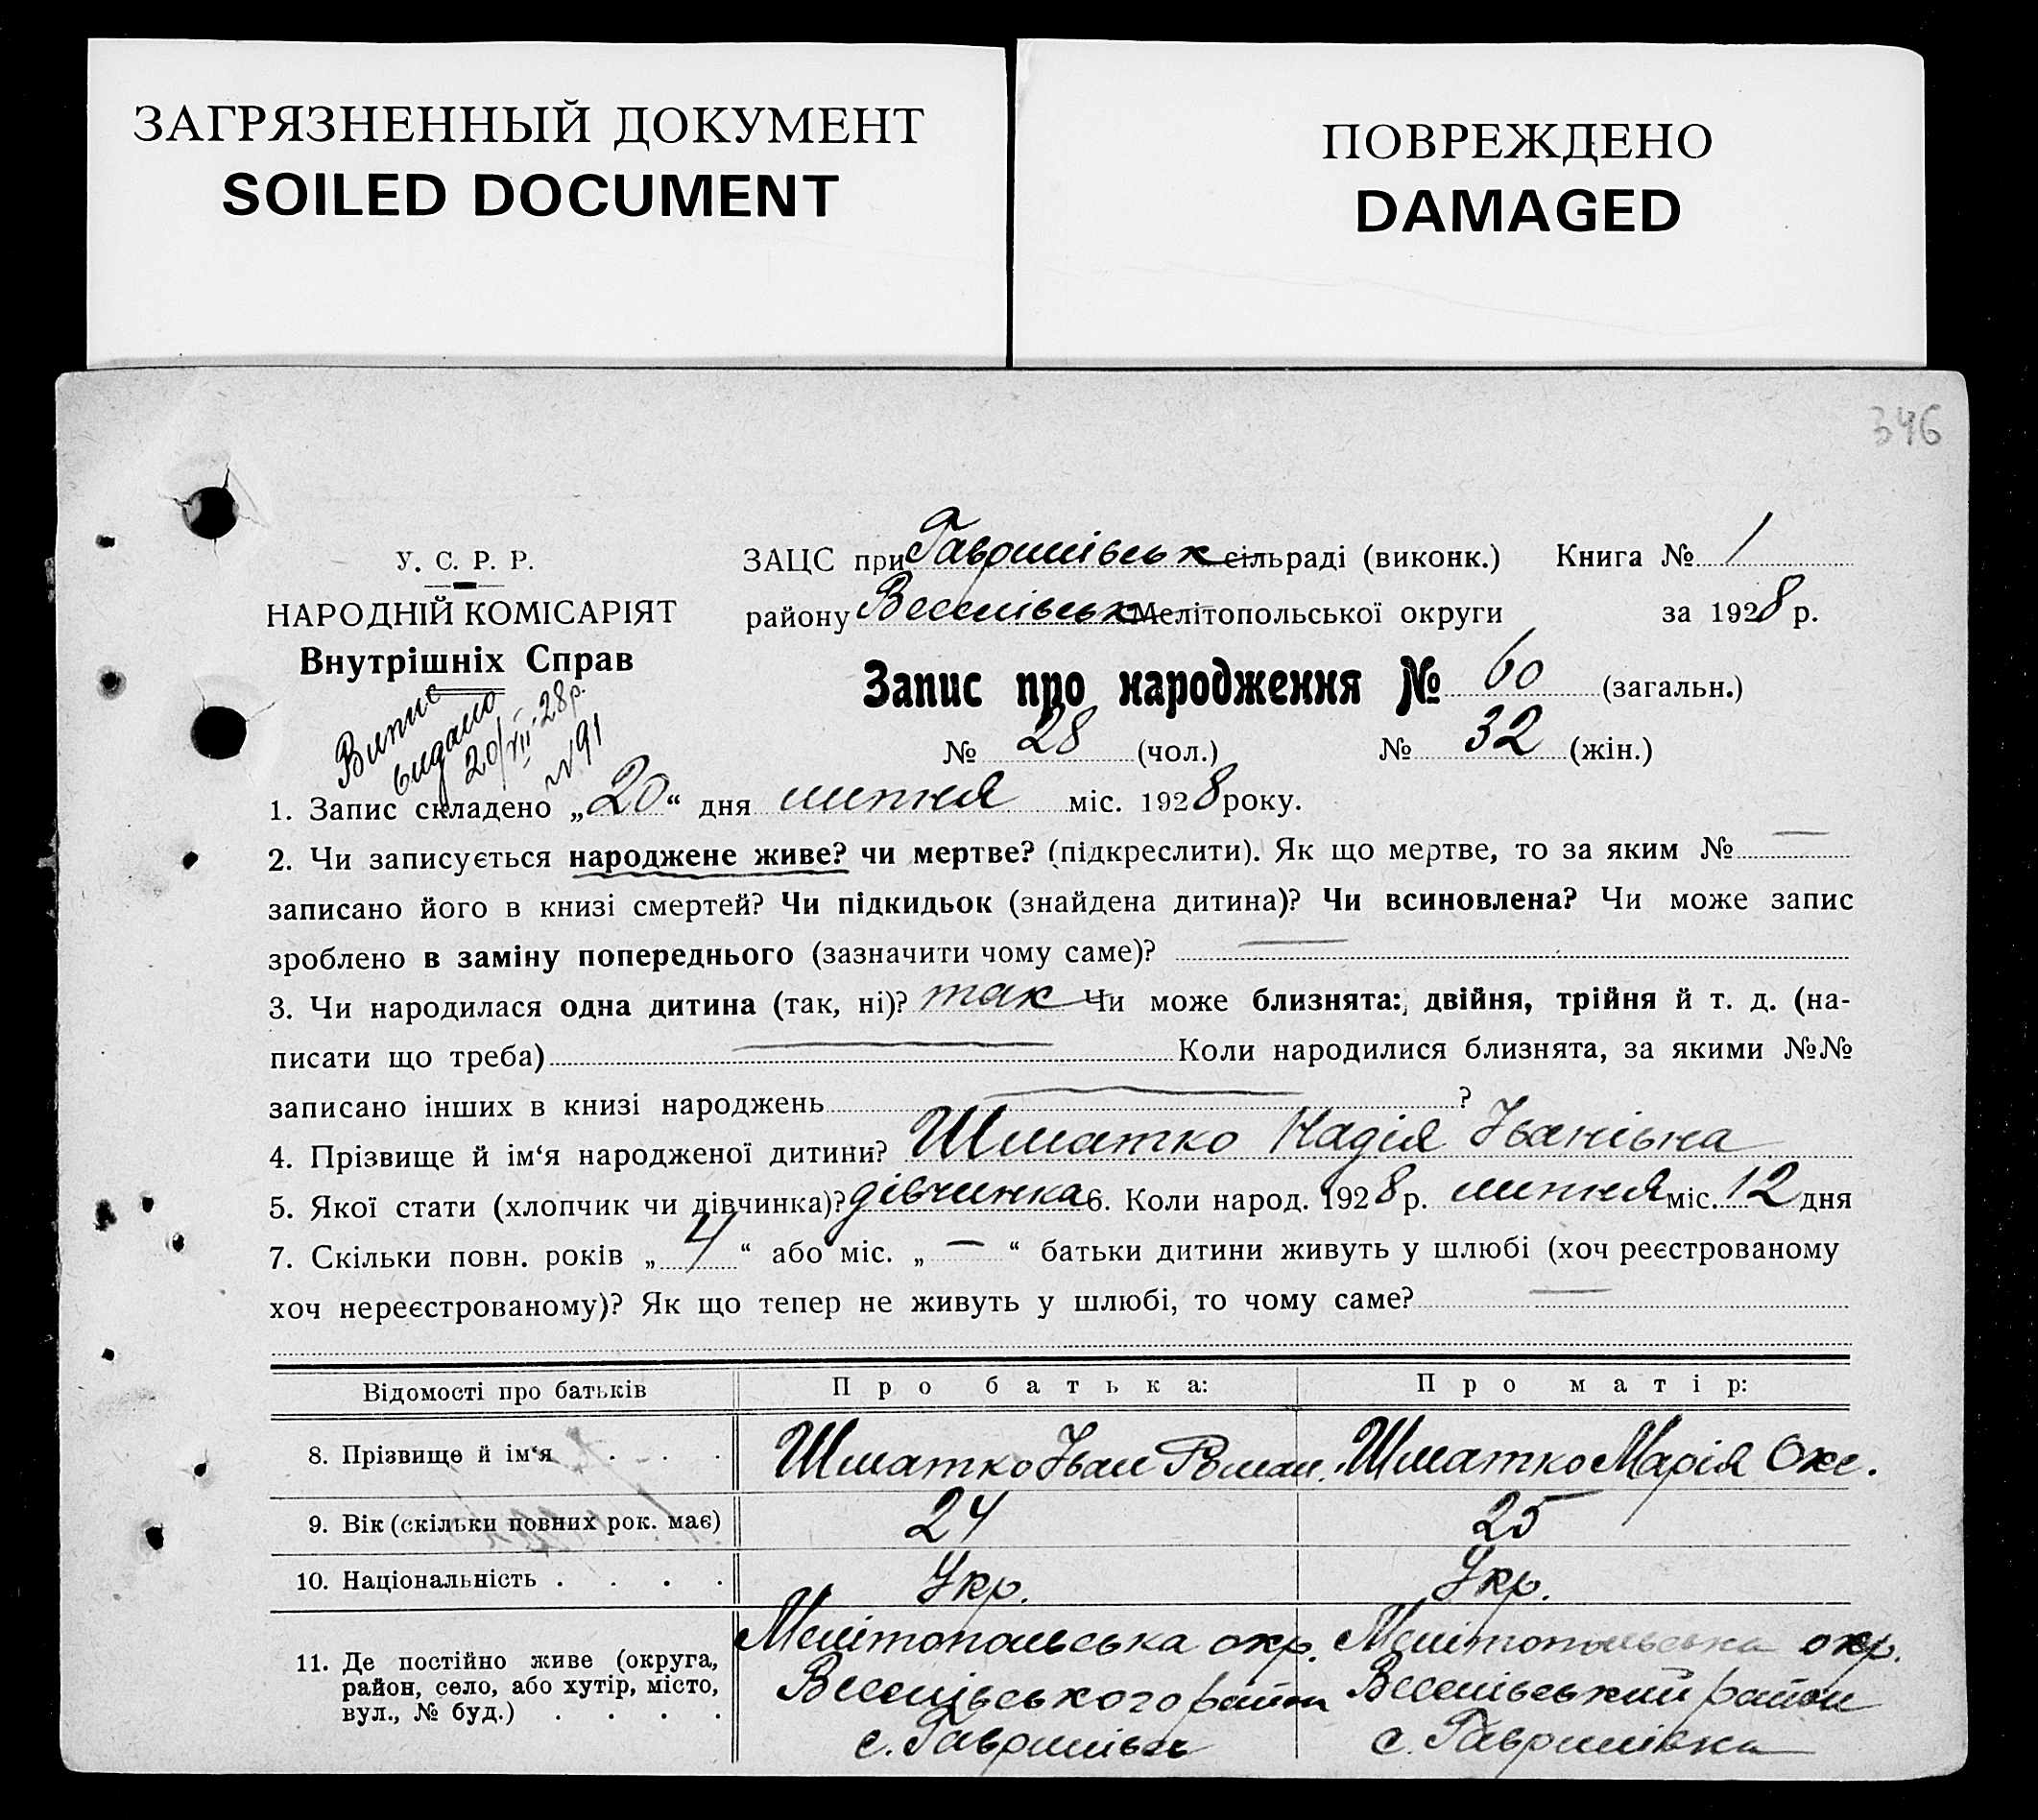 ЗАГРЯЗНЕННЫЙ ДОКУМЕНТ
SOILED DOCUMENT
ПОВРЕЖДЕНО
DAMAGED
346
У. С. Р. Р.
НАРОДНІЙ КОМІСАРІЯТ
Внутрішніх Справ
Випис
видано
20/VII 28 р.
№ 91
ЗАЦС при Гаврилівськ сільраді (виконк.) Книга № 1
району Веселівськ Мелітопольської округи за 1928 р.
Запис про народження № 60 (загальн.)
№ 28 (чол.) № 32 (жін.)
1. Запис складено „20“ дня липня міс. 1928 року.
2. Чи записується народжене живе? чи мертве? (підкреслити). Як що мертве, то за яким № —
записано його в книзі смертей? Чи підкидьок (знайдена дитина)? Чи всиновлена? Чи може запис
зроблено в заміну попереднього (зазначити чому саме)? —
3. Чи народилася одна дитина (так, ні)? так Чи може близнята: двійня, трійня й т. д. (на-
писати що треба) — Коли народилися близнята, за якими №№
записано інших в книзі народжень — ?
4. Прізвище й ім‘я народженої дитини? Шматко Надія Іванівна
5. Якої стати (хлопчик чи дівчинка)? дівчинка 6. Коли народ. 1928 р. липня міс. 12 дня
7. Скільки повн. років „4“ або міс. „—“ батьки дитини живуть у шлюбі (хоч реєстрованому
хоч нереєстрованому)? Як що тепер не живуть у шлюбі, то чому саме? —
Відомості про батьків Про батька: Про матір:
8. Прізвище й ім‘я . . . Шматко Іван Роман. Шматко Марія Окс.
9. Вік (скільки повних рок. має) 24 25
10. Національність . . . . Укр. Укр.
11. Де постійно живе (округа, район, село, або хутір, місто, вул., № буд.) . . . .
Мелітопольська окр. Мелітопольська окр.
Веселівського район Веселівський район
с. Гаврилівк с. Гаврилівка